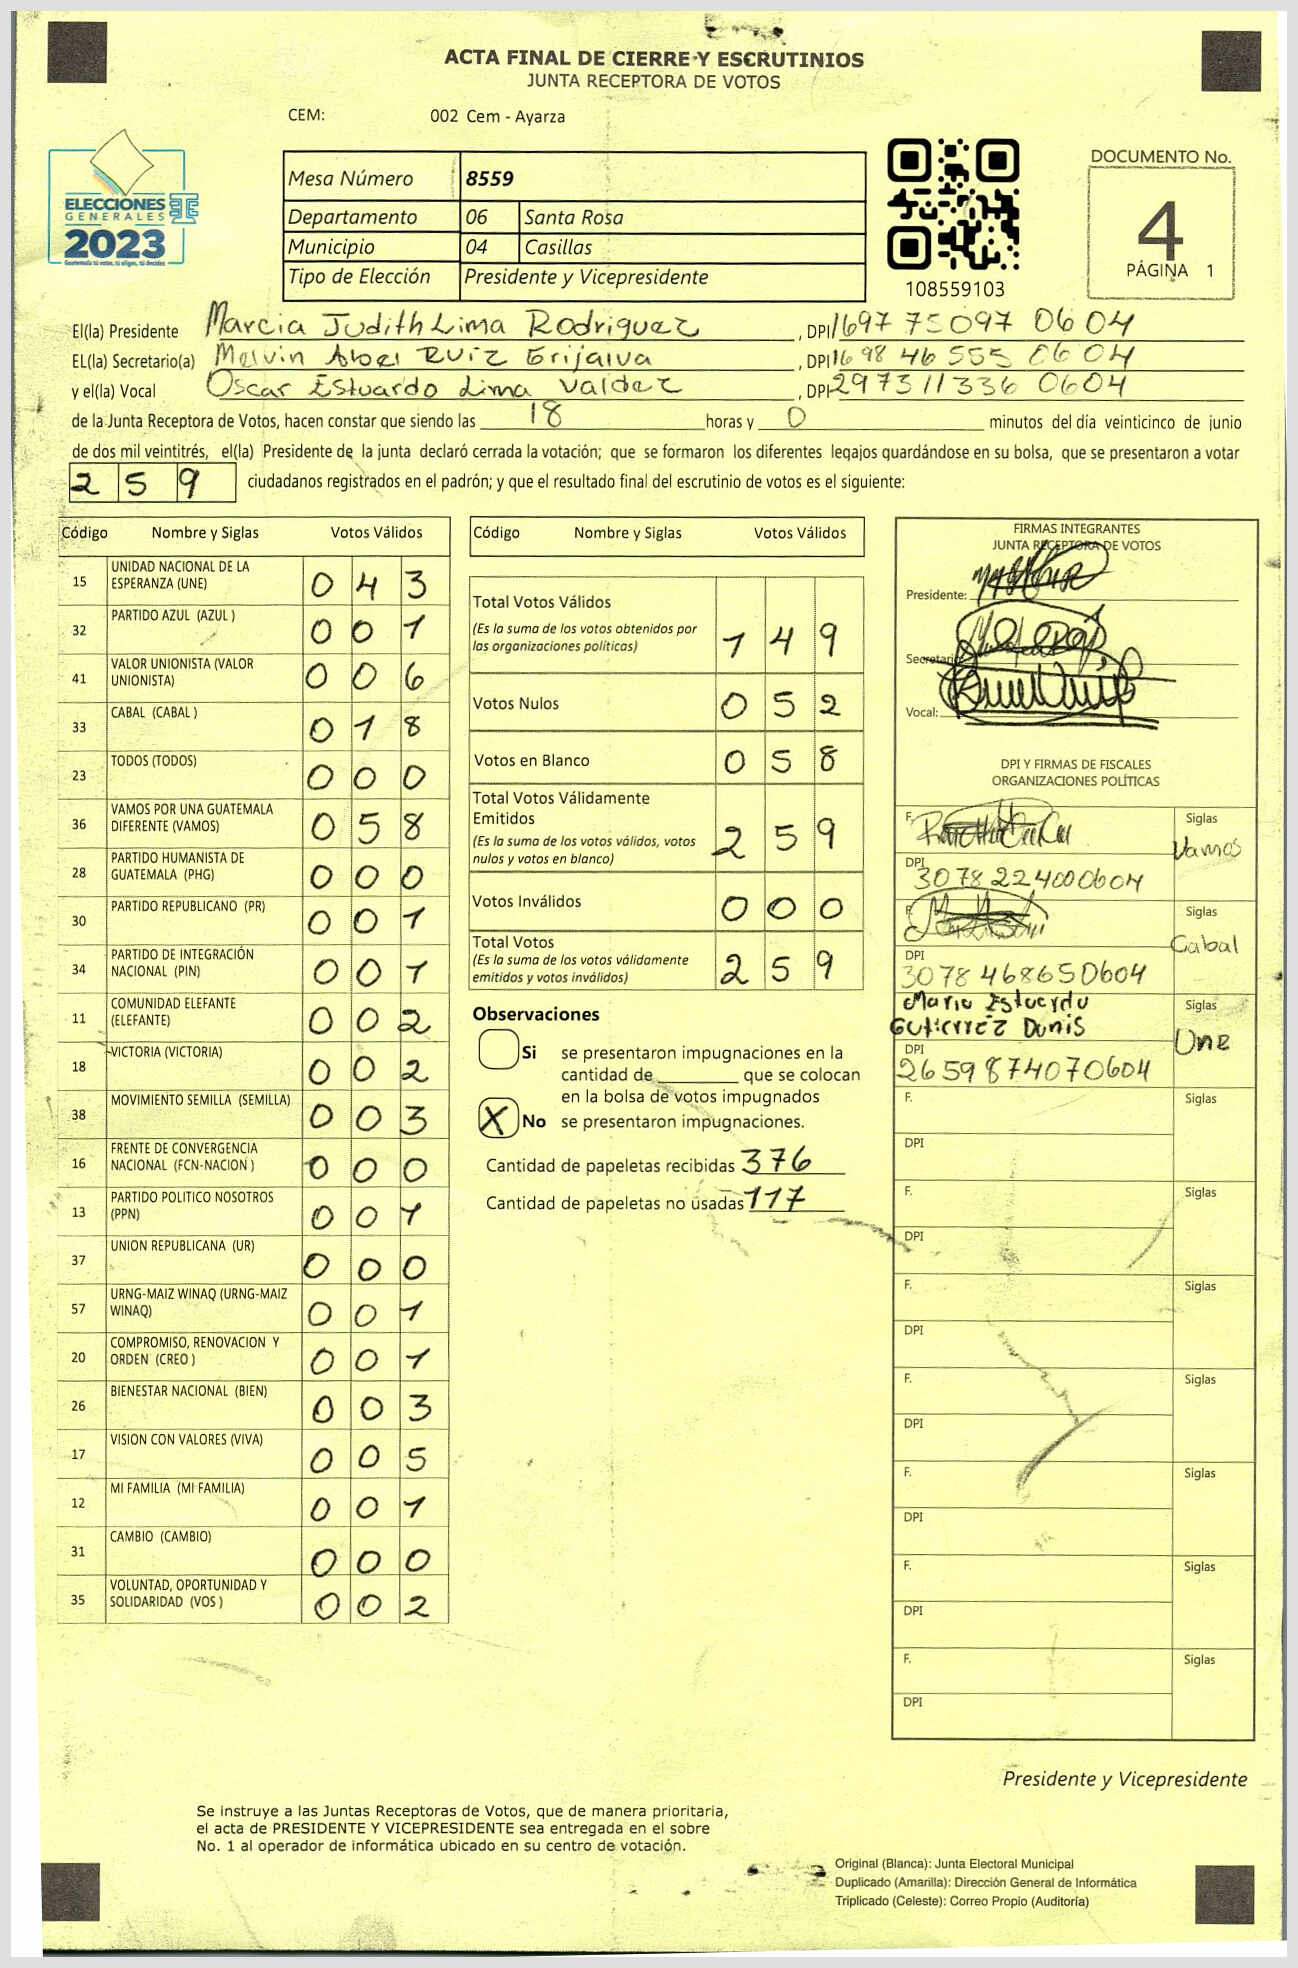 ACTA FINAL DE CIERRE Y ESCRUTINIOS
JUNTA RECEPTORA DE VOTOS
CEM: 002 Cem - Ayarza
ELECCIONES
GENERALES
2023
Guatemala tú votas, tú eliges, tú decides
Mesa Número 8559
Departamento 06 Santa Rosa
Municipio 04 Casillas
Tipo de Elección Presidente y Vicepresidente
108559103
DOCUMENTO No.
4
PÁGINA 1
El(la) Presidente Marcia Judith Lima Rodriguez, DPI 1697 75097 0604
EL(la) Secretario(a) Melvin Abel Ruiz Grijalva, DPI 1698 46555 0604
y el(la) Vocal Oscar Estuardo Lima Valdez, DPI 2973 11336 0604
de la Junta Receptora de Votos, hacen constar que siendo las 18 horas y 0 minutos del día veinticinco de junio
de dos mil veintitrés, el(la) Presidente de la junta declaró cerrada la votación; que se formaron los diferentes legajos guardándose en su bolsa, que se presentaron a votar
259 ciudadanos registrados en el padrón; y que el resultado final del escrutinio de votos es el siguiente:
Código Nombre y Siglas Votos Válidos
15 UNIDAD NACIONAL DE LA ESPERANZA (UNE) 043
32 PARTIDO AZUL (AZUL ) 001
41 VALOR UNIONISTA (VALOR UNIONISTA) 006
33 CABAL (CABAL ) 018
23 TODOS (TODOS) 000
36 VAMOS POR UNA GUATEMALA DIFERENTE (VAMOS) 058
28 PARTIDO HUMANISTA DE GUATEMALA (PHG) 000
30 PARTIDO REPUBLICANO (PR) 001
34 PARTIDO DE INTEGRACIÓN NACIONAL (PIN) 001
11 COMUNIDAD ELEFANTE (ELEFANTE) 002
18 VICTORIA (VICTORIA) 002
38 MOVIMIENTO SEMILLA (SEMILLA) 003
16 FRENTE DE CONVERGENCIA NACIONAL (FCN-NACION ) 000
13 PARTIDO POLITICO NOSOTROS (PPN) 001
37 UNION REPUBLICANA (UR) 000
57 URNG-MAIZ WINAQ (URNG-MAIZ WINAQ) 001
20 COMPROMISO, RENOVACION Y ORDEN (CREO ) 001
26 BIENESTAR NACIONAL (BIEN) 003
17 VISION CON VALORES (VIVA) 005
12 MI FAMILIA (MI FAMILIA) 001
31 CAMBIO (CAMBIO) 000
35 VOLUNTAD, OPORTUNIDAD Y SOLIDARIDAD (VOS ) 002
Código Nombre y Siglas Votos Válidos
Total Votos Válidos
(Es la suma de los votos obtenidos por las organizaciones politicas) 149
Votos Nulos 052
Votos en Blanco 058
Total Votos Válidamente Emitidos
(Es la suma de los votos válidos, votos nulos y votos en blanco) 259
Votos Inválidos 000
Total Votos
(Es la suma de los votos válidamente emitidos y votos inválidos) 259
Observaciones
Si se presentaron impugnaciones en la
cantidad de ________ que se colocan
en la bolsa de votos impugnados
X No se presentaron impugnaciones.
Cantidad de papeletas recibidas 376
Cantidad de papeletas no usadas 117
FIRMAS INTEGRANTES
JUNTA RECEPTORA DE VOTOS
Presidente:
Secretario
Vocal:
DPI Y FIRMAS DE FISCALES
ORGANIZACIONES POLÍTICAS
F. Siglas Vamos
DPI 3078224000604
F. Siglas Cabal
DPI 3078468650604
Mario Estuardo Siglas
Gutierrez Donis Une
DPI 2659874070604
F. Siglas
DPI
F. Siglas
DPI
F. Siglas
DPI
F. Siglas
DPI
F. Siglas
DPI
F. Siglas
DPI
F. Siglas
DPI
Presidente y Vicepresidente
Se instruye a las Juntas Receptoras de Votos, que de manera prioritaria,
el acta de PRESIDENTE Y VICEPRESIDENTE sea entregada en el sobre
No. 1 al operador de informática ubicado en su centro de votación.
Original (Blanca): Junta Electoral Municipal
Duplicado (Amarilla): Dirección General de Informática
Triplicado (Celeste): Correo Propio (Auditoría)